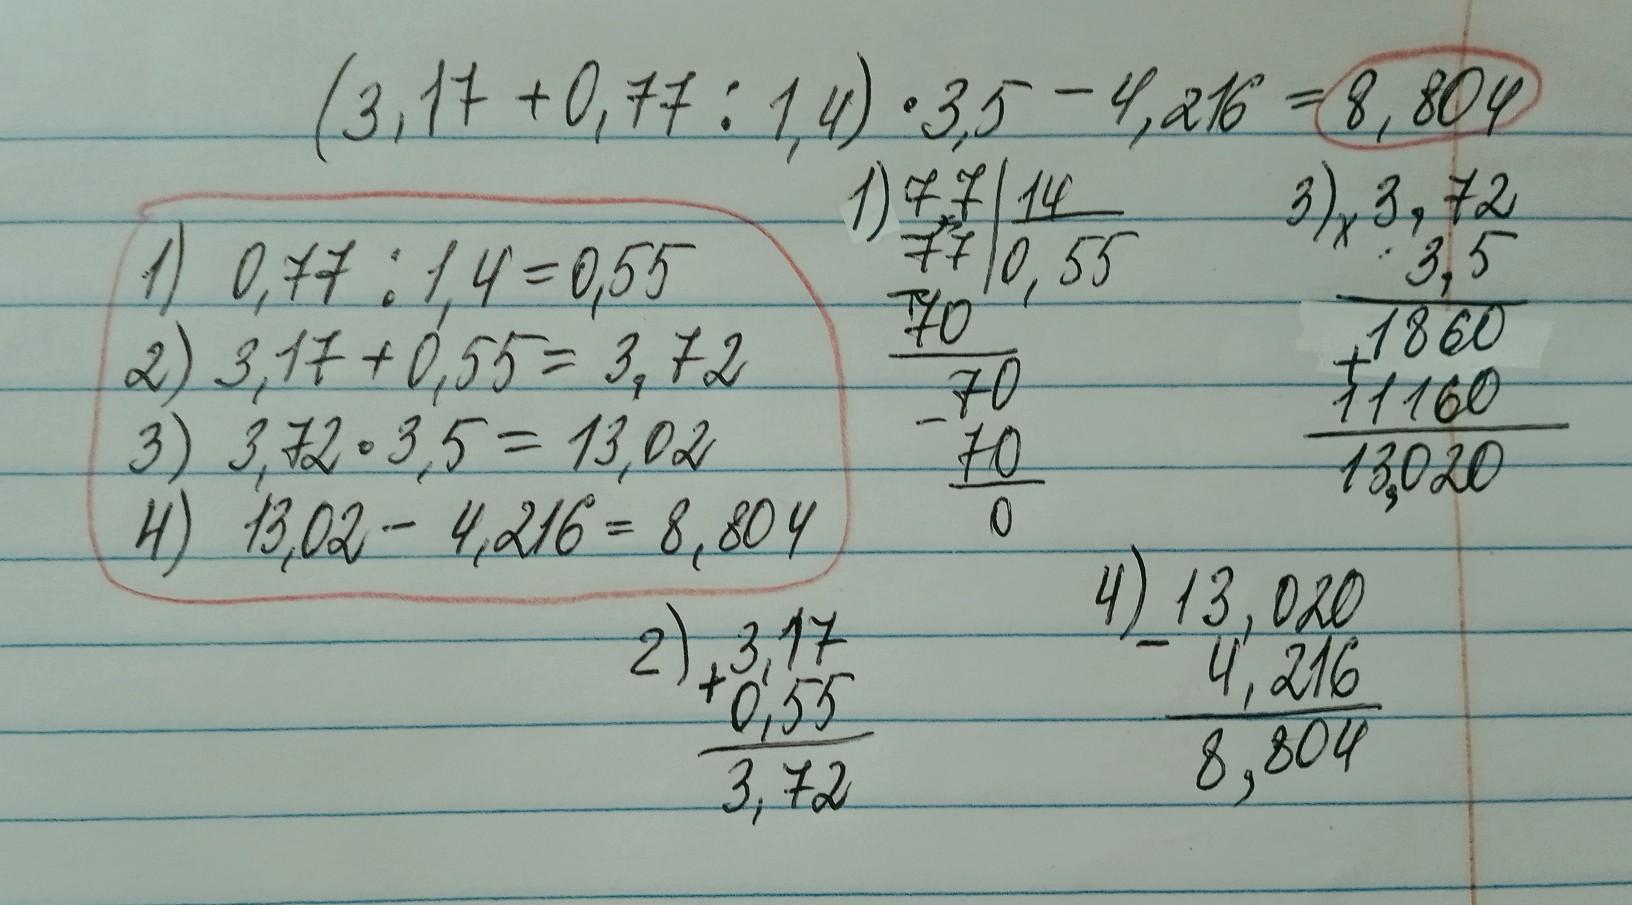 (3,17 + 0,77 : 1,4) · 3,5 - 4,216 = 8,804
1) 0,77 : 1,4 = 0,55
2) 3,17 + 0,55 = 3,72
3) 3,72 · 3,5 = 13,02
4) 13,02 - 4,216 = 8,804
1) 77 | 14
77 | 0,55
- 70
70
- 70
0
2) 3,17
+ 0,55
3,72
3) x 3,72
3,5
+ 1860
11160
13,020
4) 13,020
- 4,216
8,804